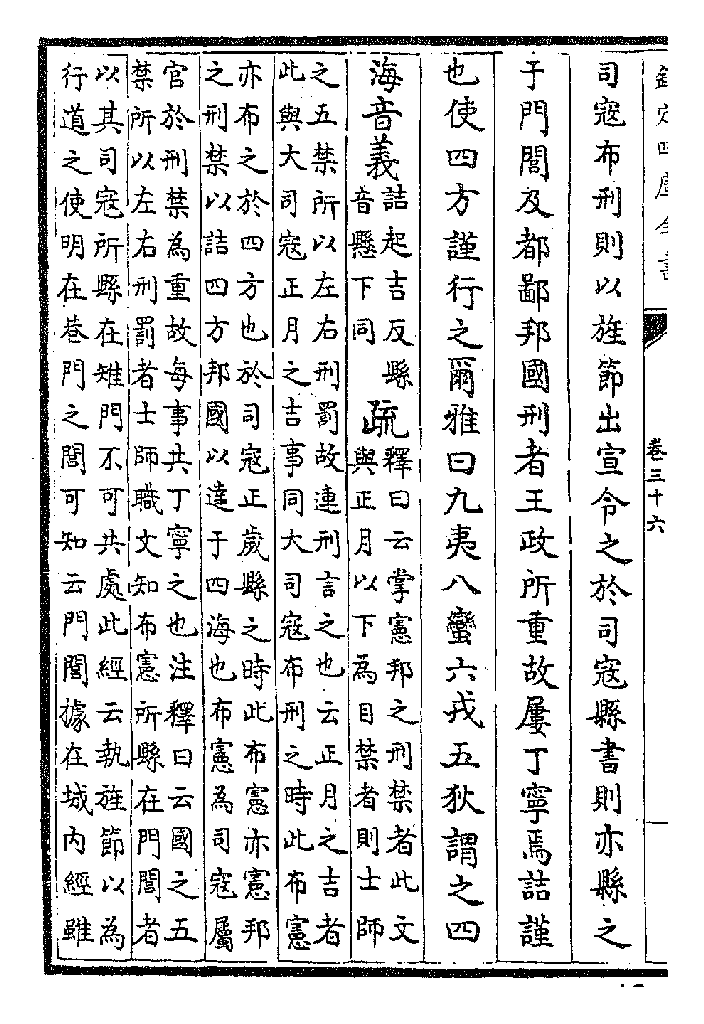 欽定四庫全書
卷三十六
司寇布刑則以旌節出宣令之於司寇縣書則亦縣之
于門閭及都鄙邦國刑者王政所重故屢丁寧焉詰謹
也使四方謹行之爾雅曰九夷八蠻六戎五狄謂之四
海音義詰起吉反縣
音懸下同
疏釋曰云掌憲邦之刑禁者此文
與正月以下為目禁者則士師
之五禁所以左右刑罰故連刑言之也云正月之吉者
此與大司寇正月之吉事同大司寇布刑之時此布憲
亦布之於四方也於司寇正歲縣之時此布憲亦憲邦
之刑禁以詰四方邦國以達于四海也布憲為司寇屬
官於刑禁為重故每事共丁寧之也注釋曰云國之五
禁所以左右刑罰者士師職文知布憲所縣在門閭者
以其司寇所縣在雉門不可共處此經云執旌節以為
行道之使明在巷門之閭可知云門閭據在城內經雖